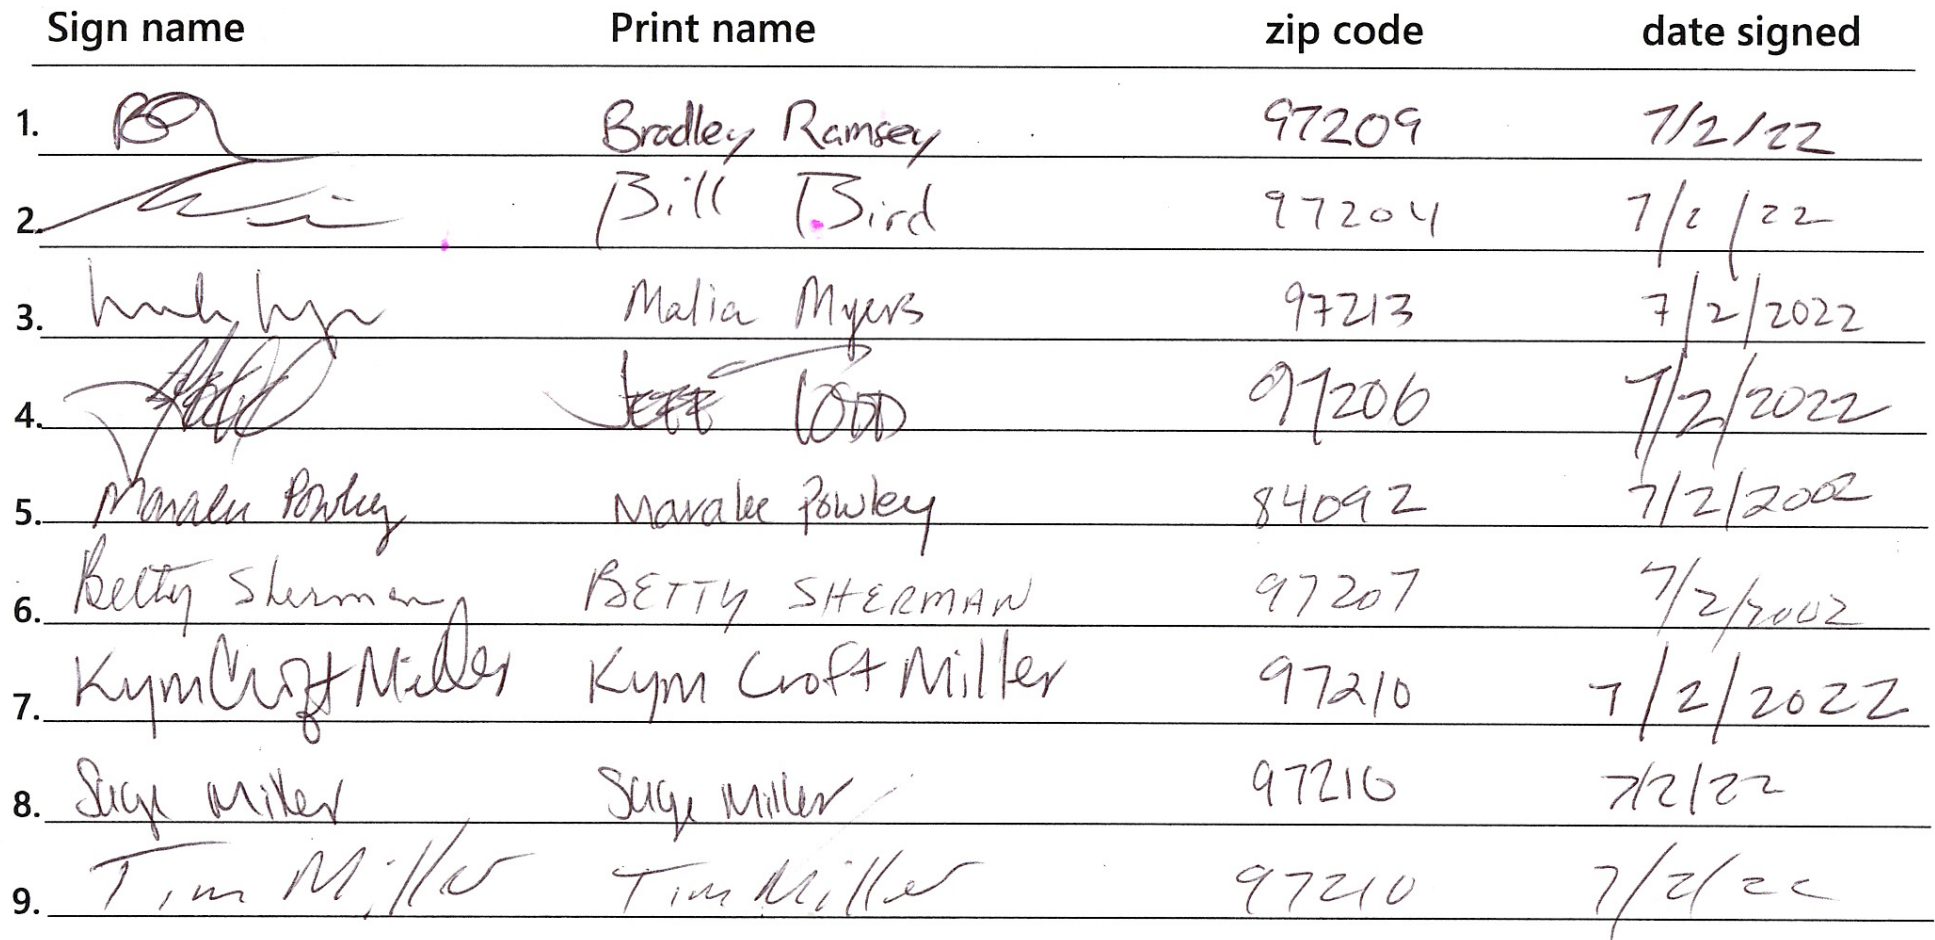 Sign name Print name zip code date signed
1. Bradley Ramsey 97209 7/2/22
2. Bill Bird 97204 7/2/22
3. Malia Myers 97213 7/2/2022
4. Jeff Todd 97206 7/2/2022
5. Maralee Powley Maralee Powley 84092 7/2/2002
6. Betty Sherman BETTY SHERMAN 97207 7/2/2002
7. Kym Croft Miller Kym Croft Miller 97210 7/2/2022
8. Sage Miller Sage Miller 97210 7/2/22
9. Tim Miller Tim Miller 97210 7/2/22